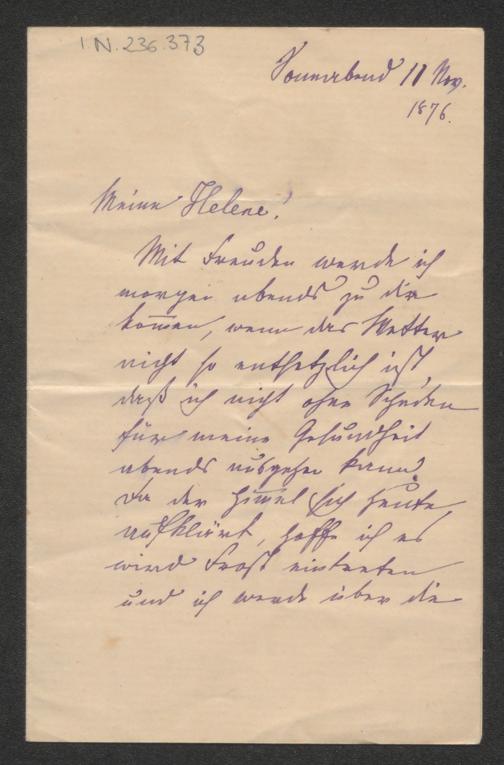 I.N. 236.373
Sonnabend 11 Nov.
1876.
Meine Helene!
Mit Freuden werde ich
morgen abends zu dir
kom̅en, wenn das Wetter
nicht so entsetzlich ist,
daß ich nicht ohne Schaden
für meine Gesundheit
abends ausgehen kann.
Da der Him̅el sich heute
aufklärt, hoffe ich es
wird Frost eintreten
und ich werde über die